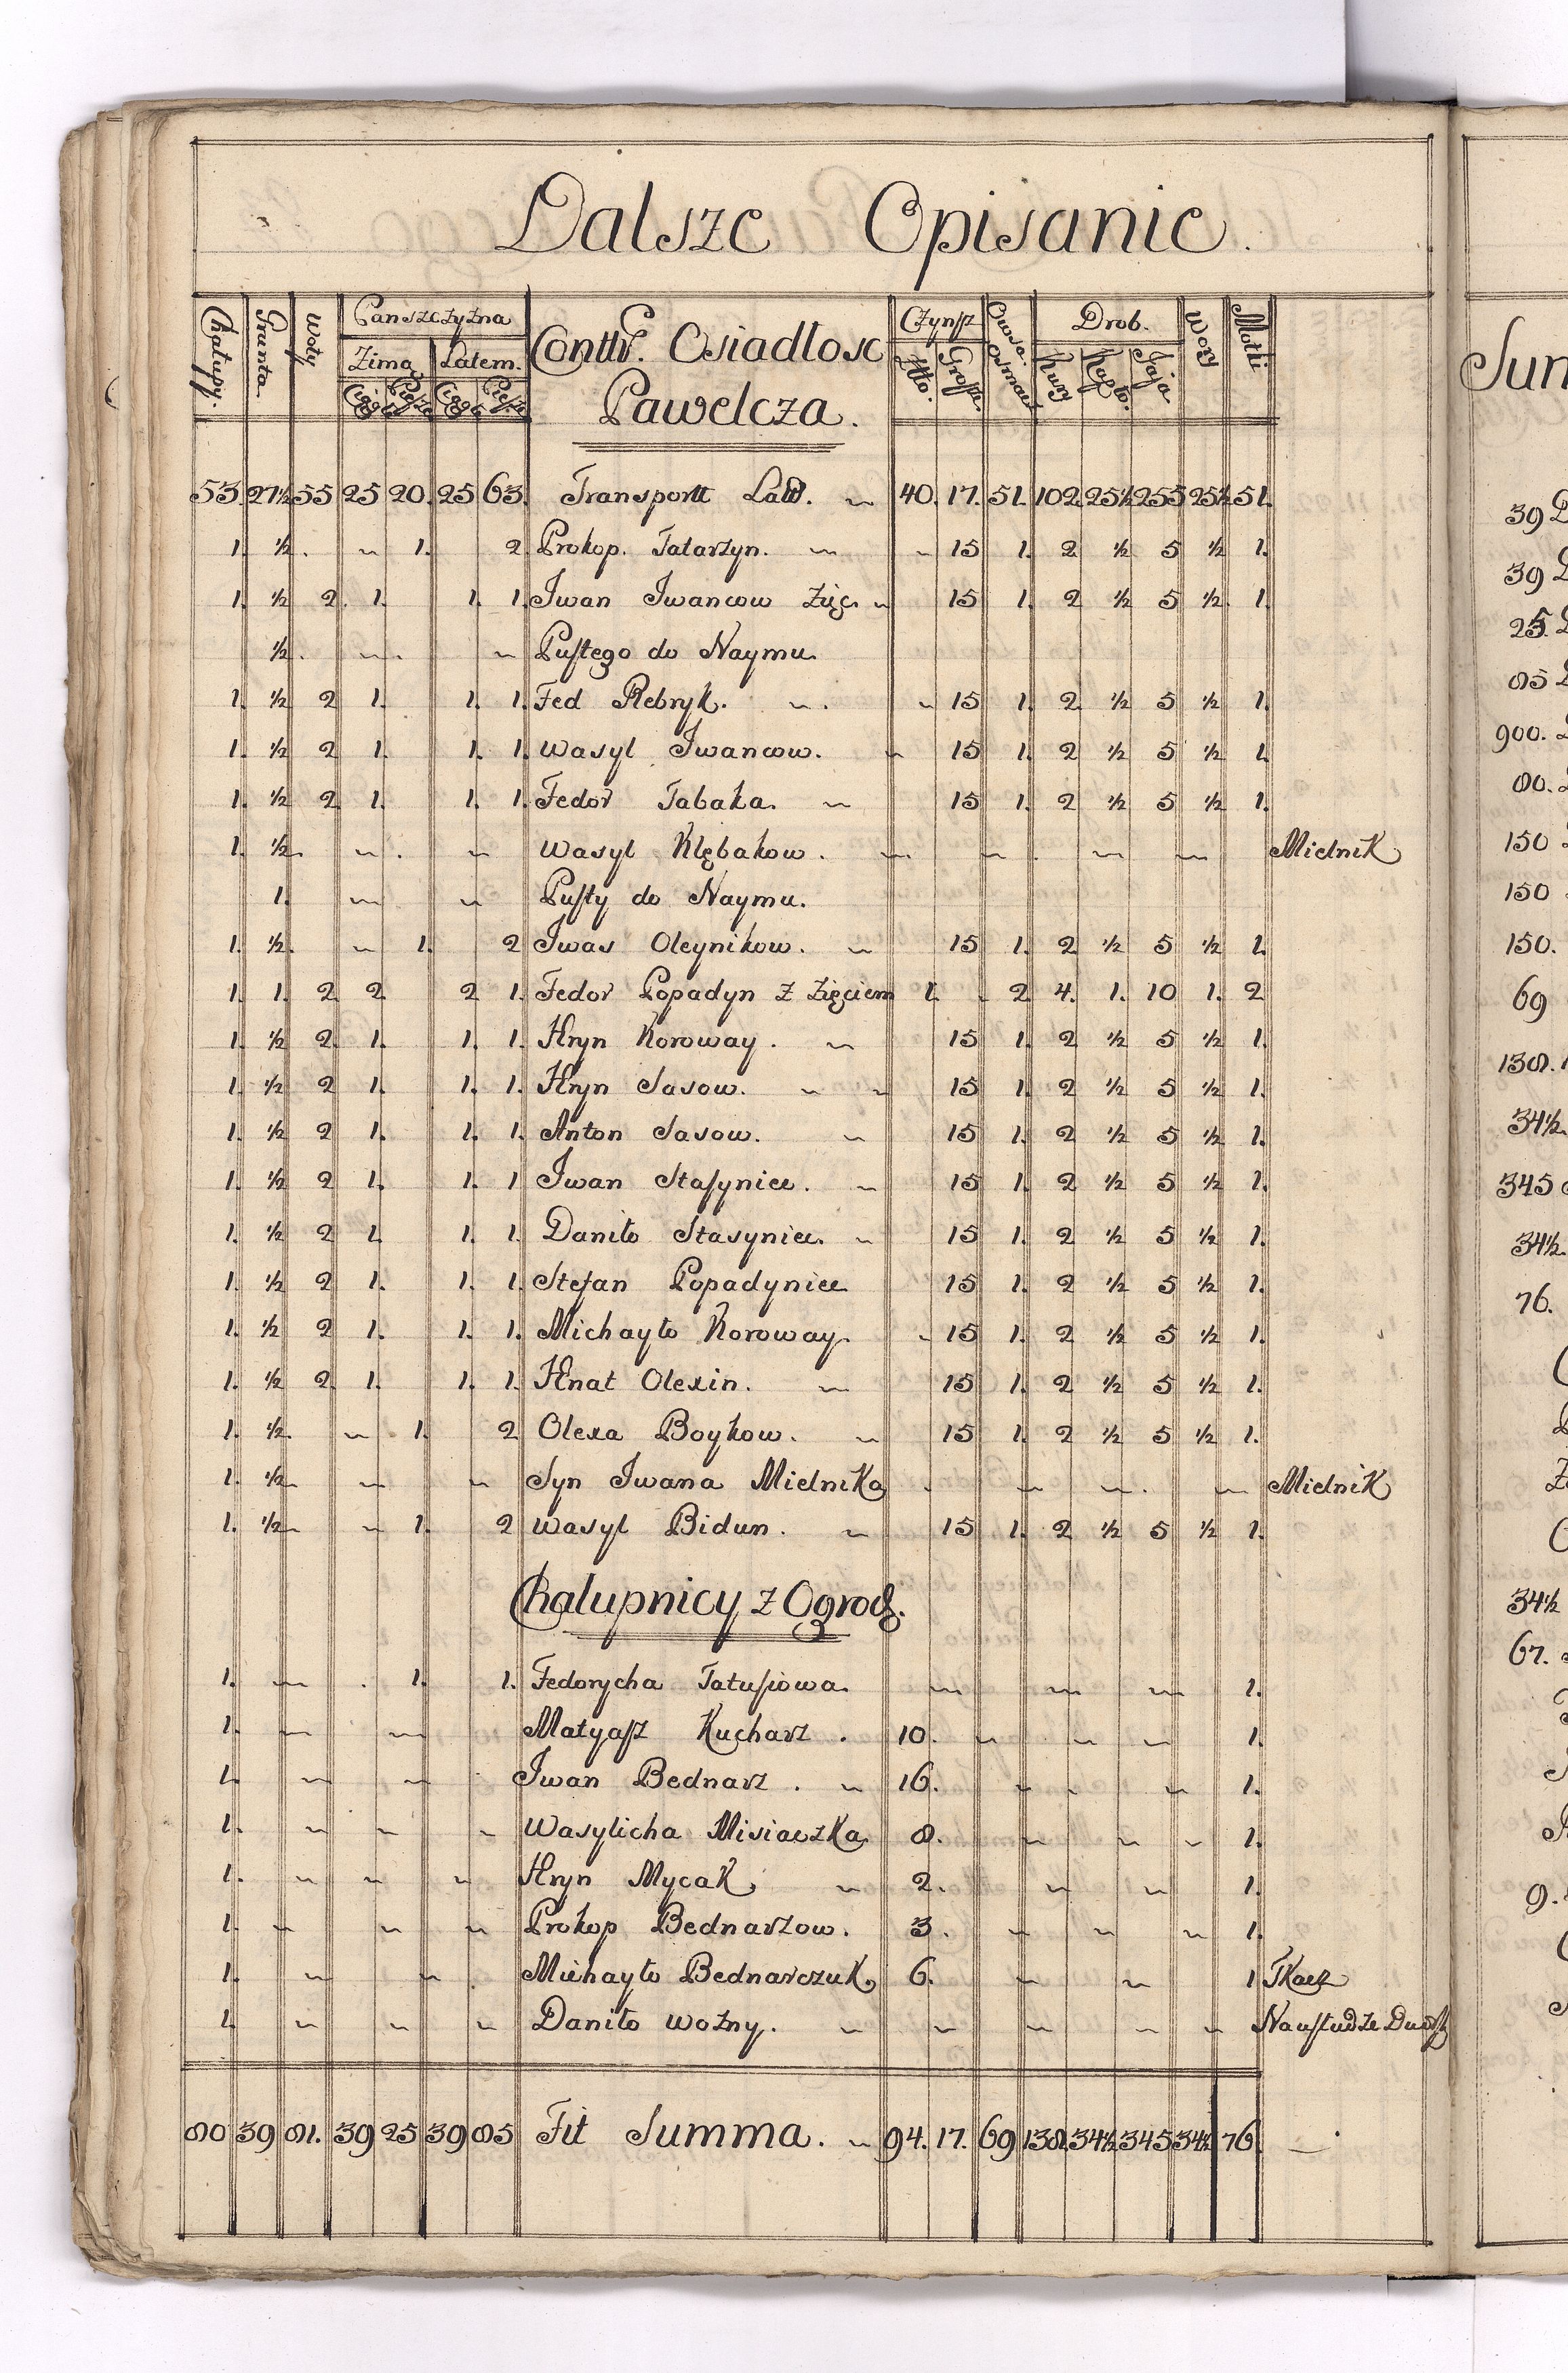 Dalsze Opisanie.
Chałupy. Grunta. Woły Panszczyzna Conttr. Osiadłosc Czynsz Drob. Wory Motki
Zimą Latem. Pawelcza. Złło. Grosze. Kury Kapło. Jaja
53. 27½ 55 25 20. 25 63. Transportt Latt. 40. 17. 51. 102. 25½ 255 25½ 51.
1. ½. 1. 2. Prokop. Tatarzyn. 15 1. 2 ½ 5 ½ 1.
1. ½ 2. 1. 1. 1. Jwan Jwancow Zięc. 15 1. 2 ½ 5 ½. 1.
½. Pustego do Naymu.
1. ½ 2 1. 1. 1. Fed Rebryk. 15 1. 2 ½ 5 ½ 1.
1. ½ 2 1. 1. 1. Wasyl Jwancow. 15 1. 2 ½ 5 ½ 1.
1. ½ 2 1. 1. 1. Fedor Tabaka. 15 1. 2 ½ 5 ½ 1.
1. ½. Wasyl Klębakow. Mielnik
1. Pusty do Naymu.
1. ½. 1. 2 Jwas Oleynikow. 15 1. 2 ½ 5 ½ 1.
1. 1. 2 2 2 1. Fedor Popadyn z Zięciem 1. 2 4. 1. 10 1. 2
1. ½ 2. 1. 1. 1. Hryn Koroway. 15 1. 2 ½ 5 ½ 1.
1. ½ 2 1. 1. 1. Hryn Sasow. 15 1. 2 ½ 5 ½ 1.
1. ½ 2 1. 1. 1. Anton Sasow. 15 1. 2 ½ 5 ½ 1.
1. ½ 2 1. 1. 1 Jwan Stasyniec. 15 1. 2 ½ 5 ½ 1.
1. ½ 2 1. 1. 1. Daniło Stasyniec. 15 1. 2 ½ 5 ½ 1.
1. ½ 2 1. 1. 1. Stefan Popadyniec 15 1. 2 ½ 5 ½ 1.
1. ½ 2 1. 1. 1. Michayło Koroway. 15 1. 2 ½ 5 ½ 1.
1. ½ 2. 1. 1. 1. Hnat Olexin. 15 1. 2 ½ 5 ½ 1.
1. ½. 1. 2 Olexa Boykow. 15 1. 2 ½ 5 ½ 1.
1. ½ Syn Jwana Mielnika Mielnik
1. ½ 1. 2 Wasyl Bidun. 15 1. 2 ½ 5 ½ 1.
Chalupnicy z Ogrod.
1. 1. 1. Fedorycha Tatusiowa. 1.
1. Matyasz Kucharz. 10. 1.
1. Jwan Bednarz. 16. 1.
1. Wasylicha Misiaczka 8. 1.
1. Hryn Mycak 2. 1.
1. Prokop Bednarzow. 3. 1.
1. Michayło Bednarczuk 6. 1 Tkacz
1. Daniło Wozny.
80 39 81. 39 25 39 85 Fit Summa. 94. 17. 69 138. 34½ 345 34½ 76
39
39
25.
85
900.
80.
150
150
150.
69
138.
34½
345
34½
76.
34½
67.
9.